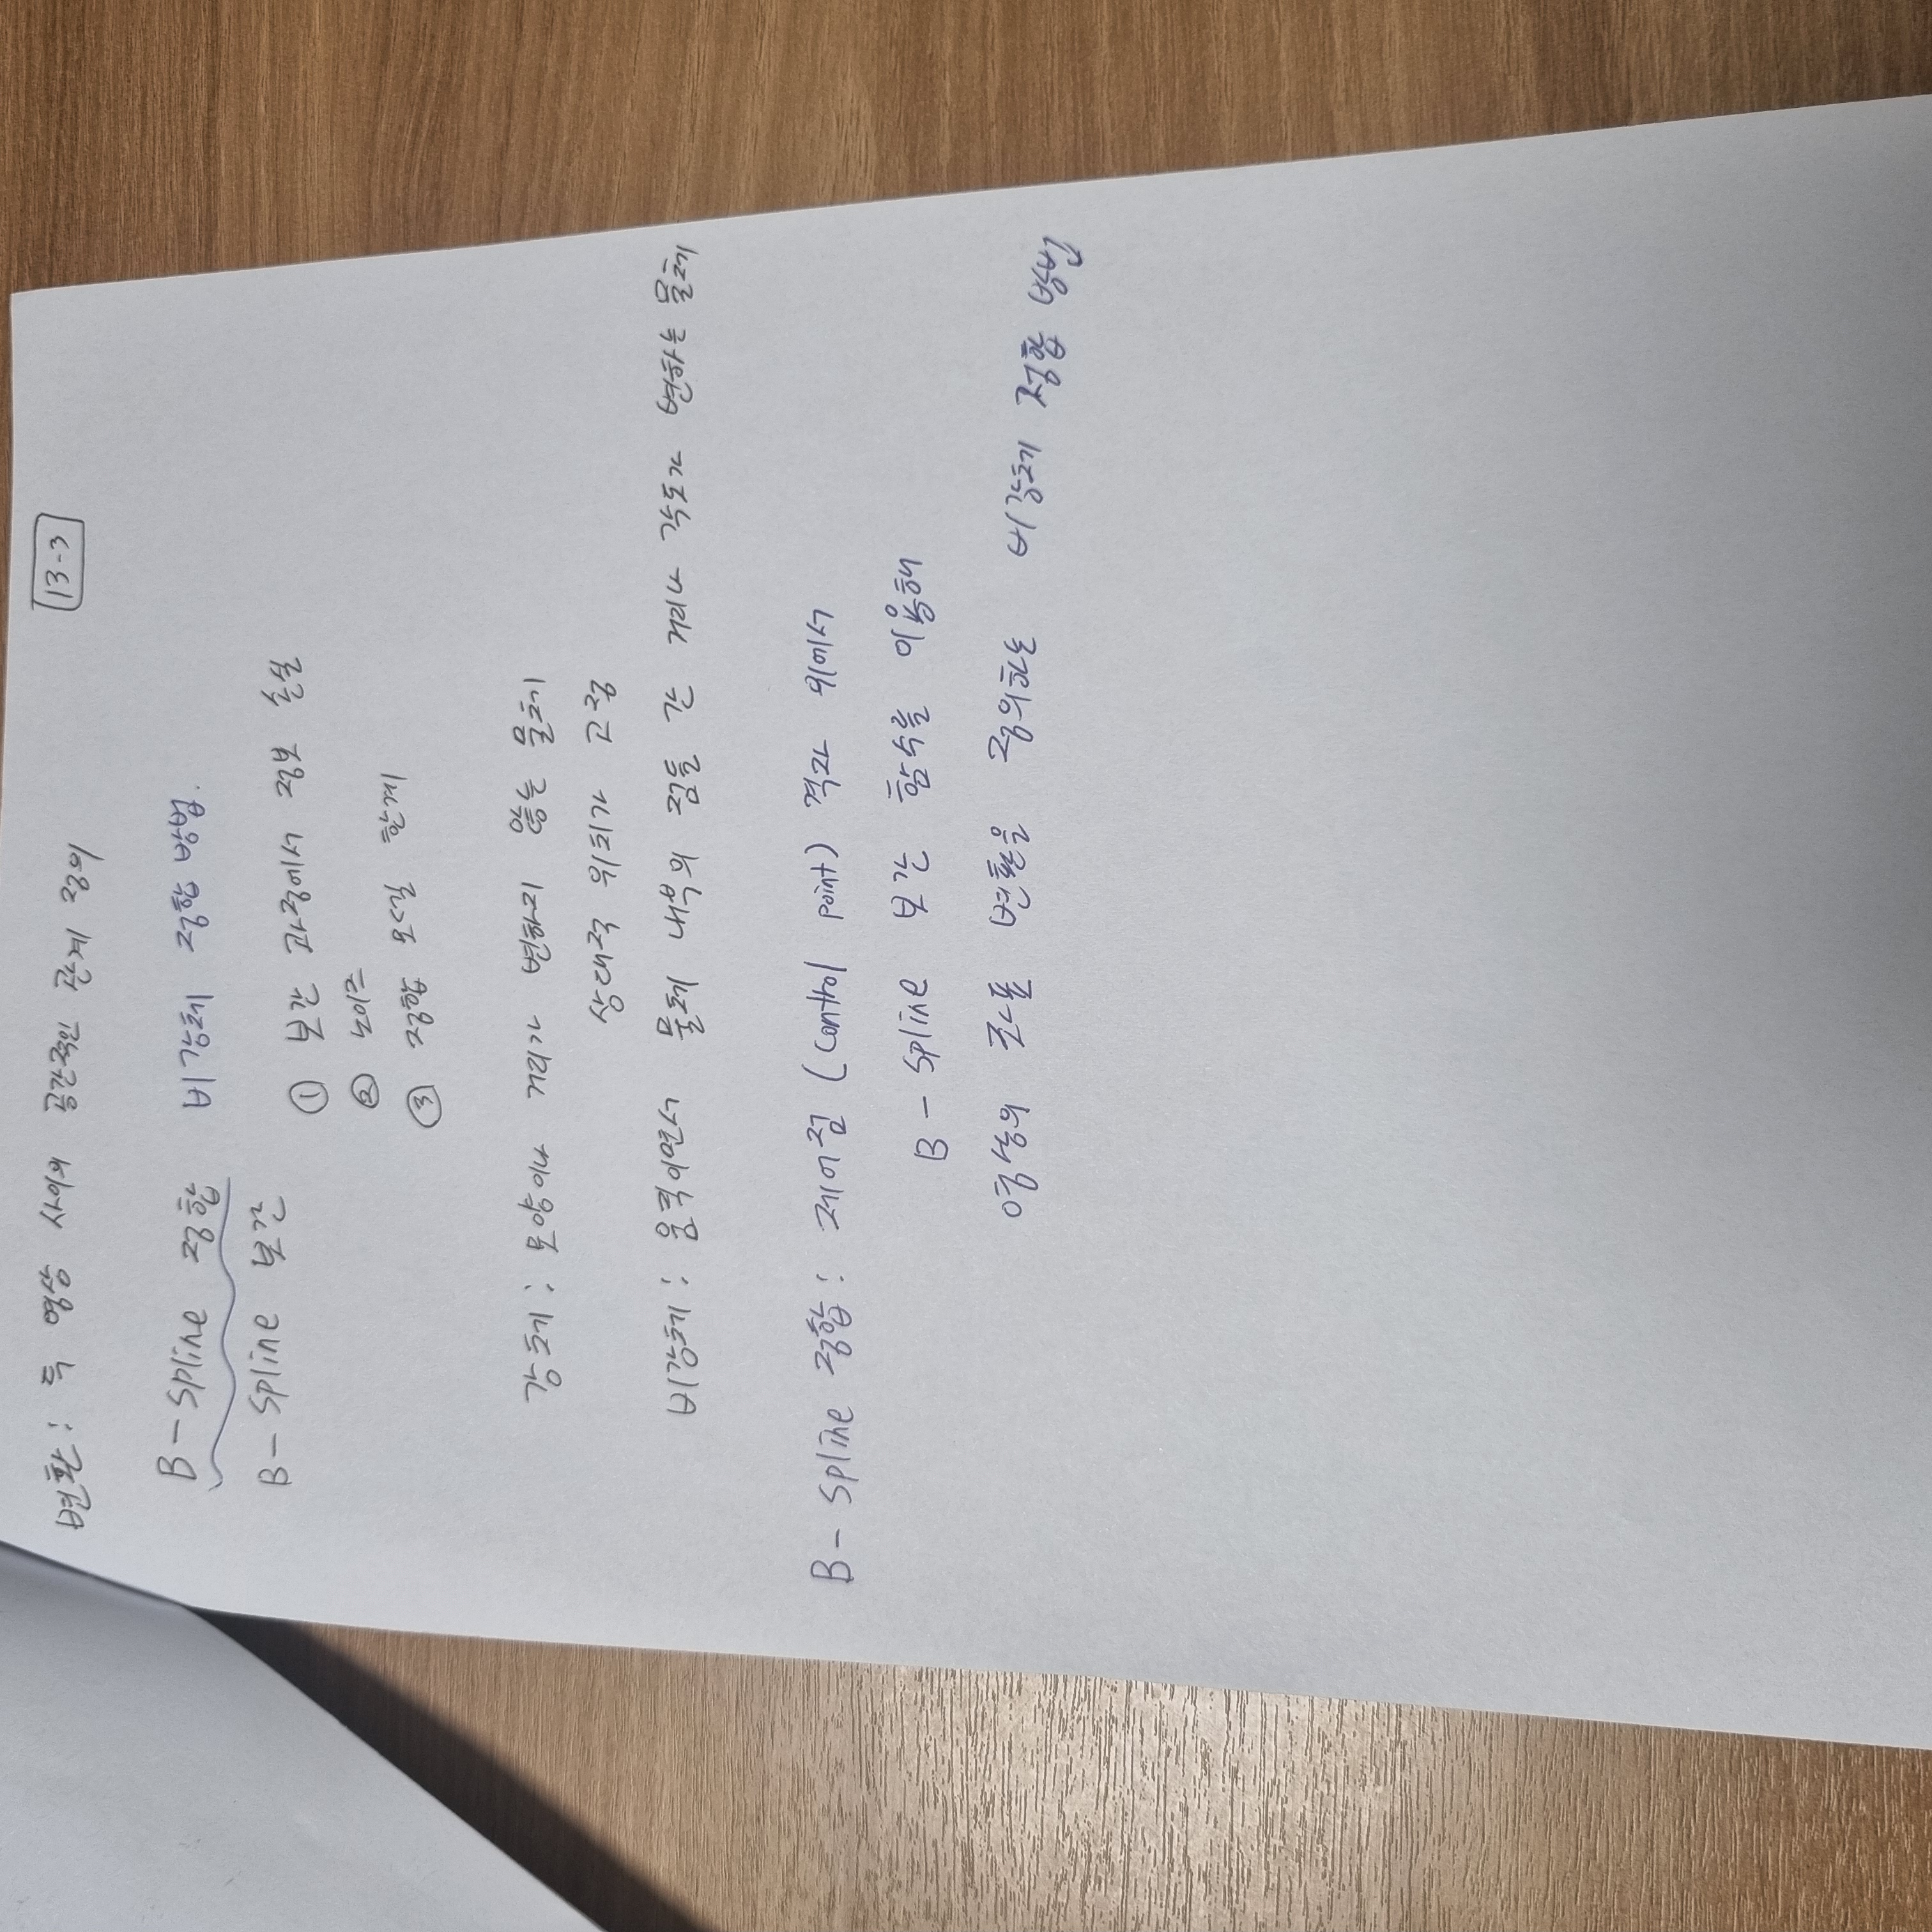 변환 : 두 영상 사이의 공간적인 관계 정의
13-3
B - spline 정합 비강체 정합 방법.
B - spline 보간
① 보간 과정에서 정보 손실
② 노이즈
③ 정합 한계
강체 : 모양이나 거리가 변하지 않는 물체
상대적 위치가 고정
비강체 : 움직이면서 물체 내부의 점들 간 거리나 각도가 변하는 물체
B - spline 정합 : 제어점 (control point) 격자 위에서
B - spline 보간 함수를 이용해
영상의 좌표 변환을 정의하는 비강체 정합 방법